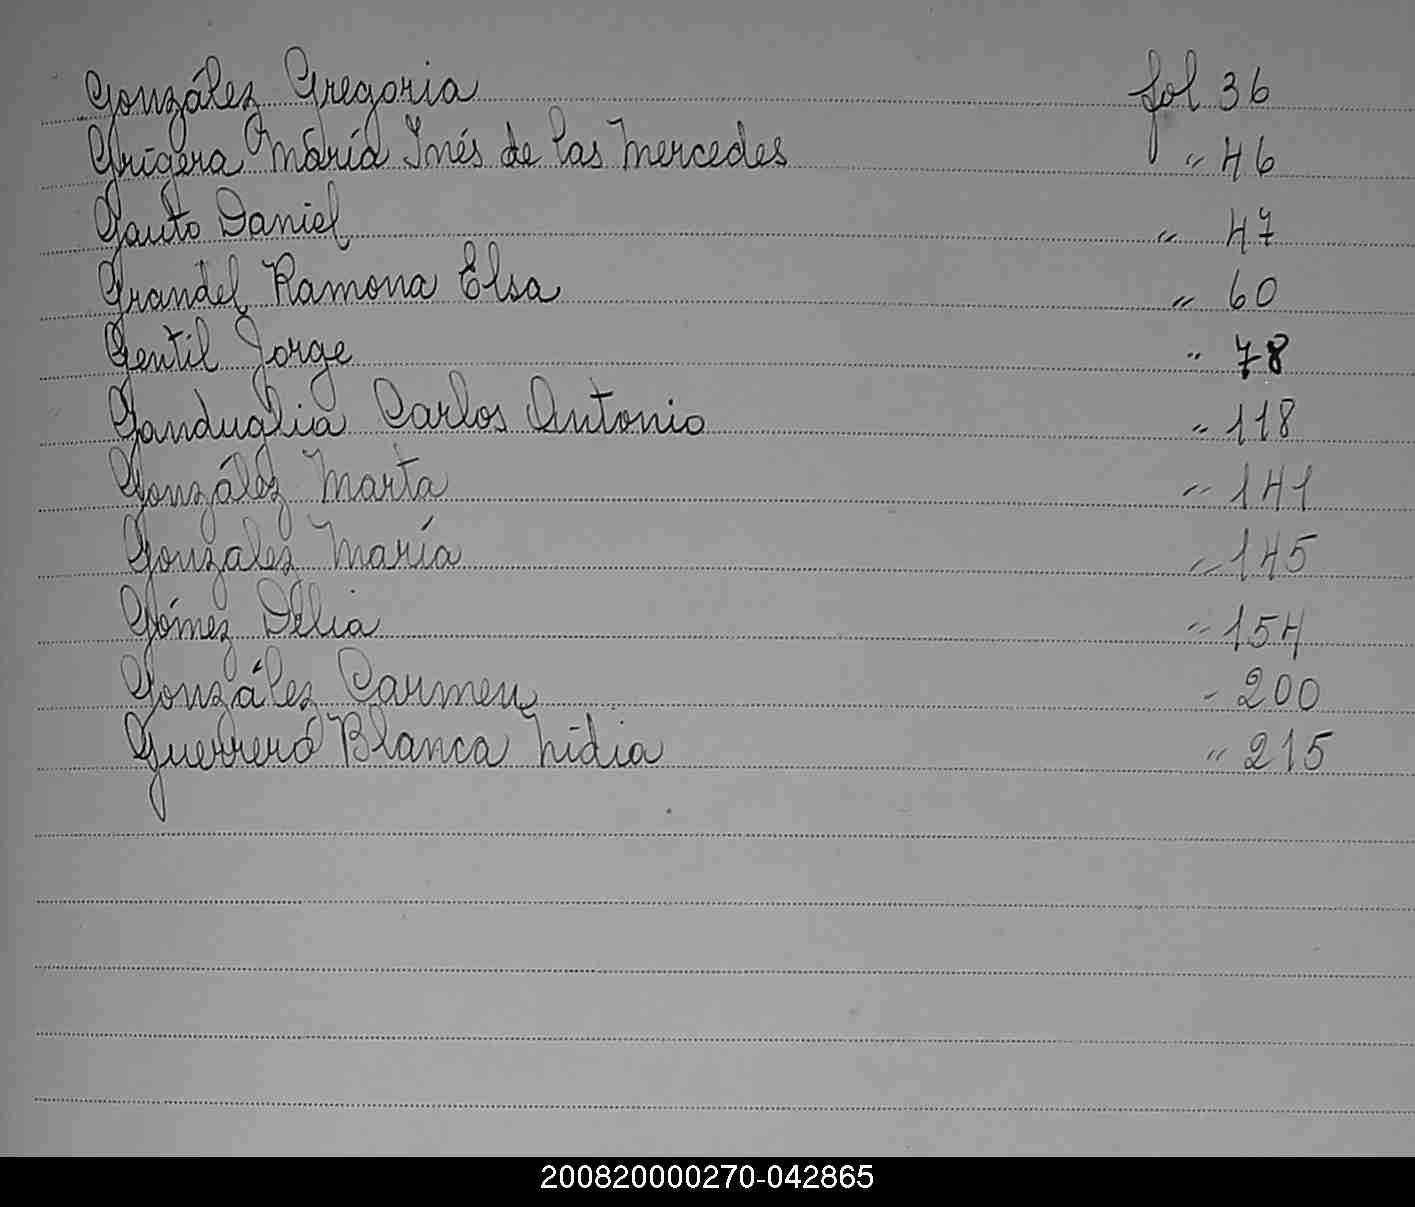 González Gregoria fol 36
Grigera María Inés de las Mercedes " 46
Gauto Daniel " 47
Grandel Ramona Elsa " 60
Gentil Jorge " 78
Ganduglia Carlos Antonio " 118
González Marta " 141
Gonzalez María " 145
Gómez Delia " 154
González Carmen " 200
Guerrero Blanca Nidia " 215
200820000270-042865